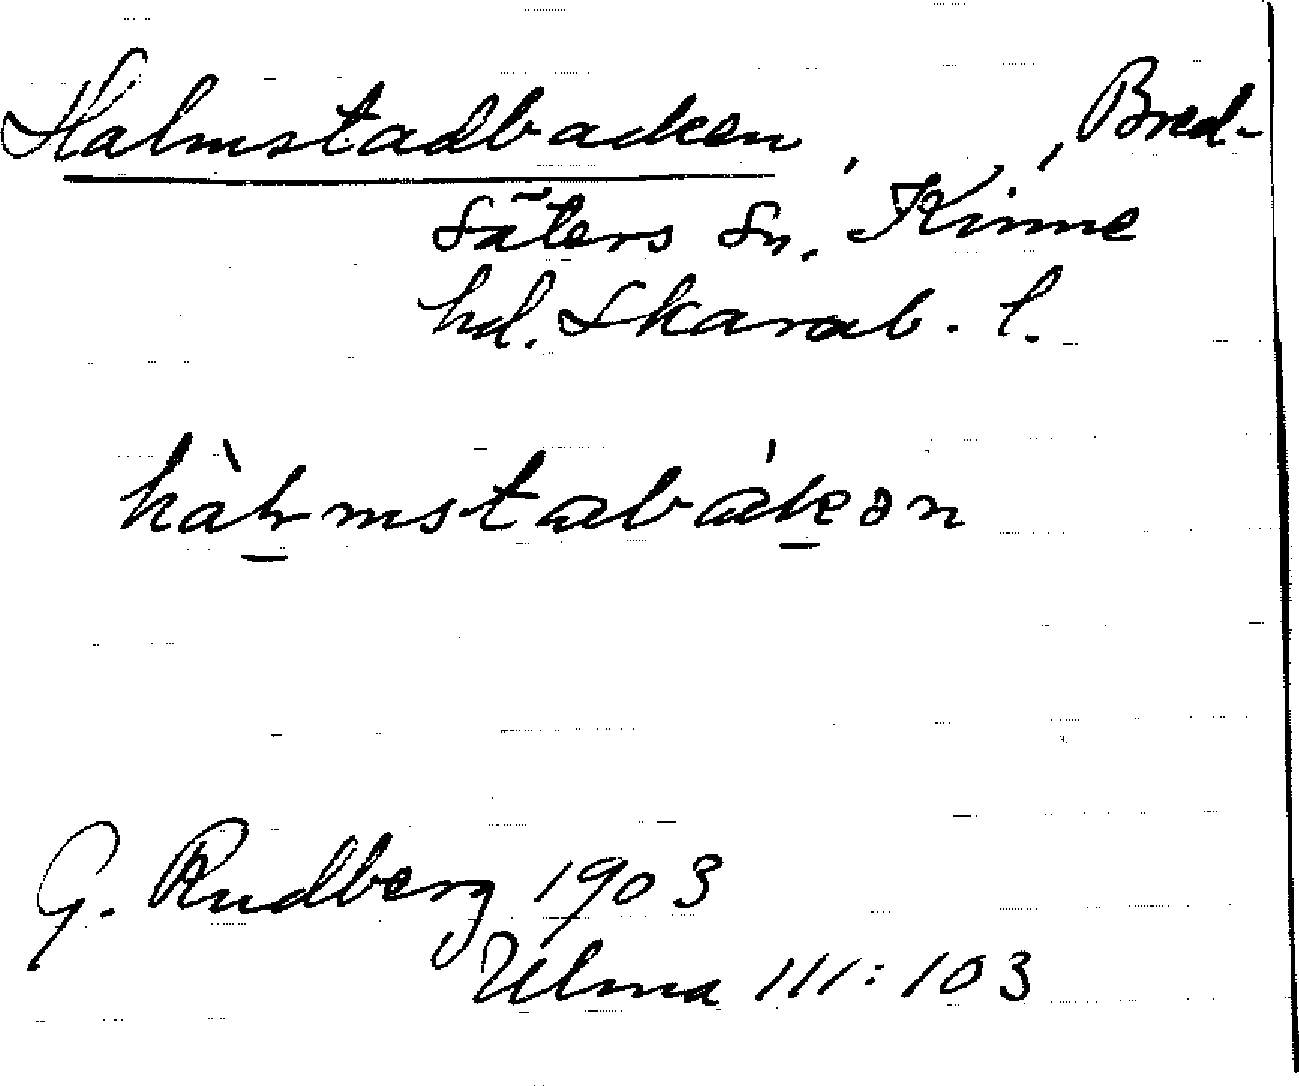 Halmstadbacken, , Bred-
säters sn. Kinne
hd. Skarab. l.
hàlmstabákən
G. Rudberg 1903
Ulma 111:103